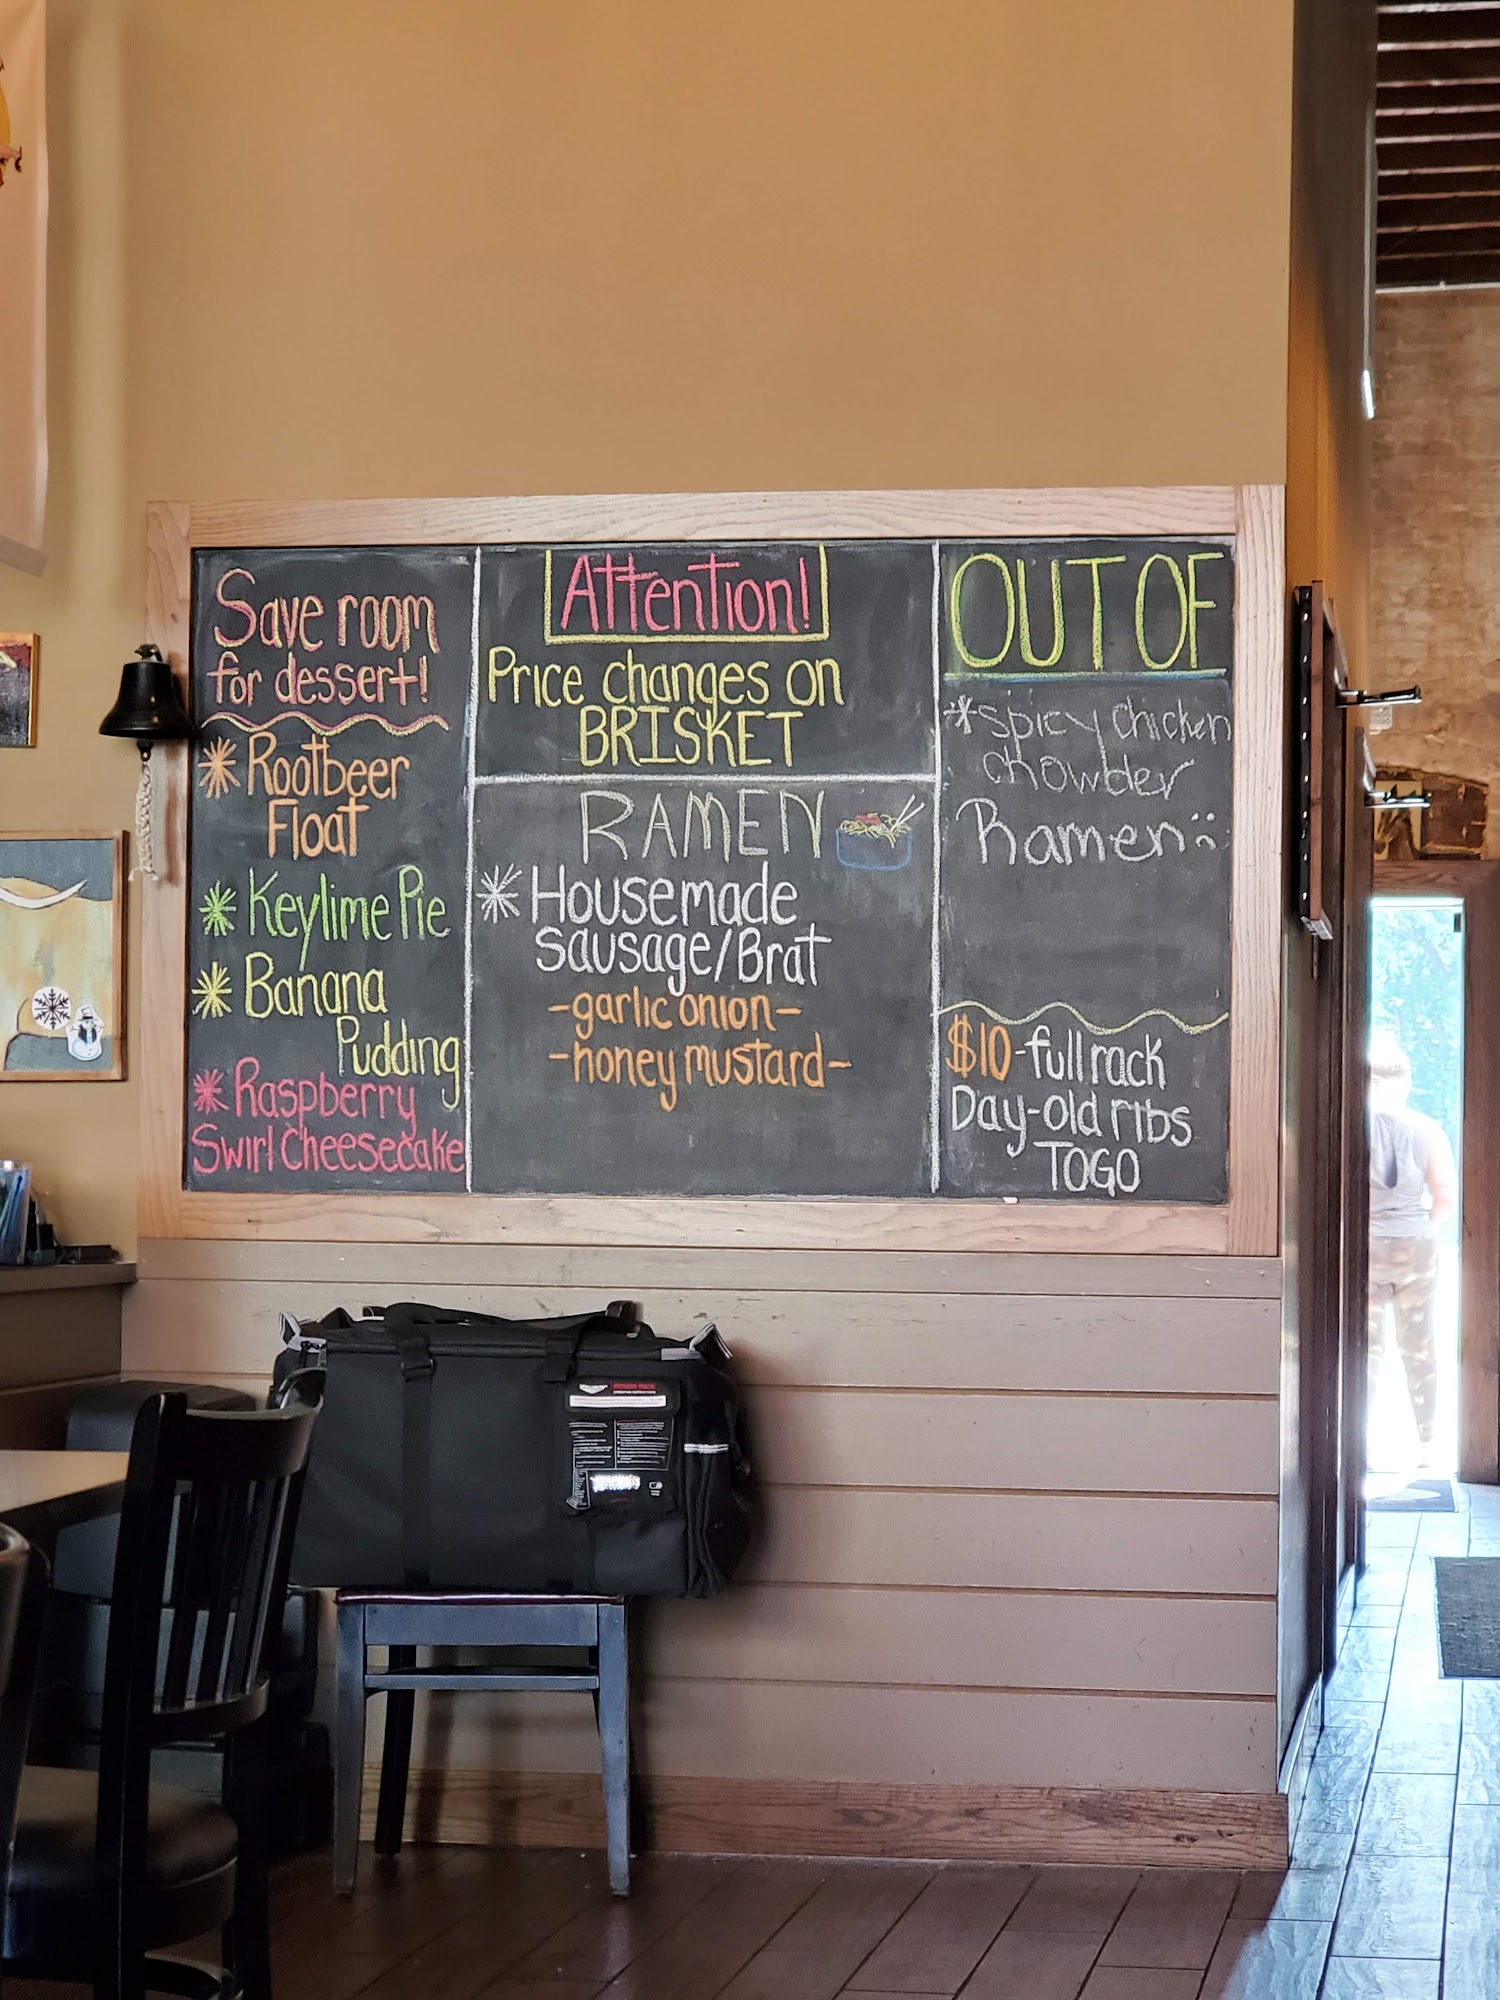 Save room
for dessert!
* Rootbeer
Float
* Keylime Pie
* Banana
Pudding
* Raspberry
Swirl Cheesecake
Attention!
Price changes on
BRISKET
RAMEN
* Housemade
Sausage/Brat
-garlic onion-
-honey mustard-
OUT OF
*spicy chicken
chowder
Ramen :(
$10-full rack
Day-old ribs
TOGO